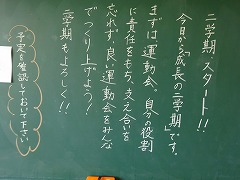 二学期、スタート!!
今日から「成長の二学期」です。
まずは運動会。自分の役割
に責任をもち、支え合いを
忘れず、良い運動会をみんな
でつくり上げよう!
二学期もよろしく!!
予定を確認しておいて下さい